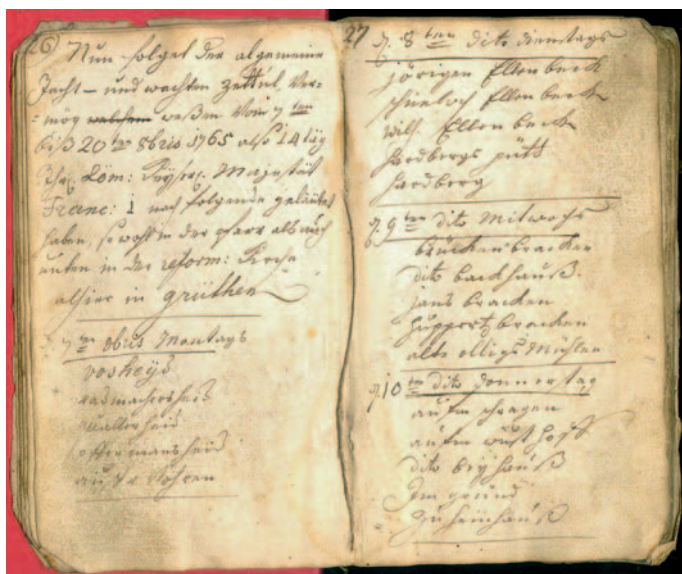 26
Nun folget der algemeine
Jacht- und wachten Zettul, Ver=
=mög welchem weßen Vom 7 ten
biß 20 ten 8bris 1765 also 14 täg
Röm: Keyserl. Majestät
Franc: 1 nach folgende geläutet
haben, so wohl in der pfarr als auch
unten in der reform: Kirche
alhier in grüthen
7 ten 8bris Montags
vosheyd
radmachersheid
heid
ostermansheid
auf
27
d. 8 ten dito dienstags
jörigen Ellenbeck
Ellenbeck
wilh. Ellenbeck
hardbergs pütt
hardberg
d. 9 ten dito Mitwochs
brücken bracken
dito backhauß.
jans bracken
huppertz bracken
alte olligs Mühlen
d. 10 ten dito donnerstag
aufm schragen
aufm hoff
dito beyhauß
Im grund